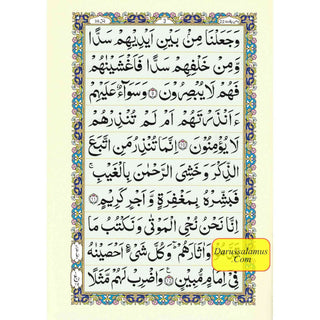 وَجَعَلْنَا مِنْۢ بَيْنِ اَيْدِيْهِمْ سَدًّا
وَّمِنْ خَلْفِهِمْ سَدًّا فَاَغْشَيْنٰهُمْ
فَهُمْ لَا يُبْصِرُوْنَ ﴿۹﴾ وَسَوَآءٌ عَلَيْهِمْ
ءَاَنْذَرْتَهُمْ اَمْ لَمْ تُنْذِرْهُمْ
لَا يُؤْمِنُوْنَ ﴿۱۰﴾ اِنَّمَا تُنْذِرُ مَنِ اتَّبَعَ
الذِّكْرَ وَخَشِيَ الرَّحْمٰنَ بِالْغَيْبِ ۚ
فَبَشِّرْهُ بِمَغْفِرَةٍ وَّاَجْرٍ كَرِيْمٍ ﴿۱۱﴾
اِنَّا نَحْنُ نُحْيِ الْمَوْتٰى وَنَكْتُبُ مَا
وَاٰثَارَهُمْ ۚ وَكُلَّ شَيْءٍ اَحْصَيْنٰهُ
فِيْٓ اِمَامٍ مُّبِيْنٍ ﴿۱۲﴾ وَاضْرِبْ لَهُمْ مَّثَلًا
Darussalamus
.Com